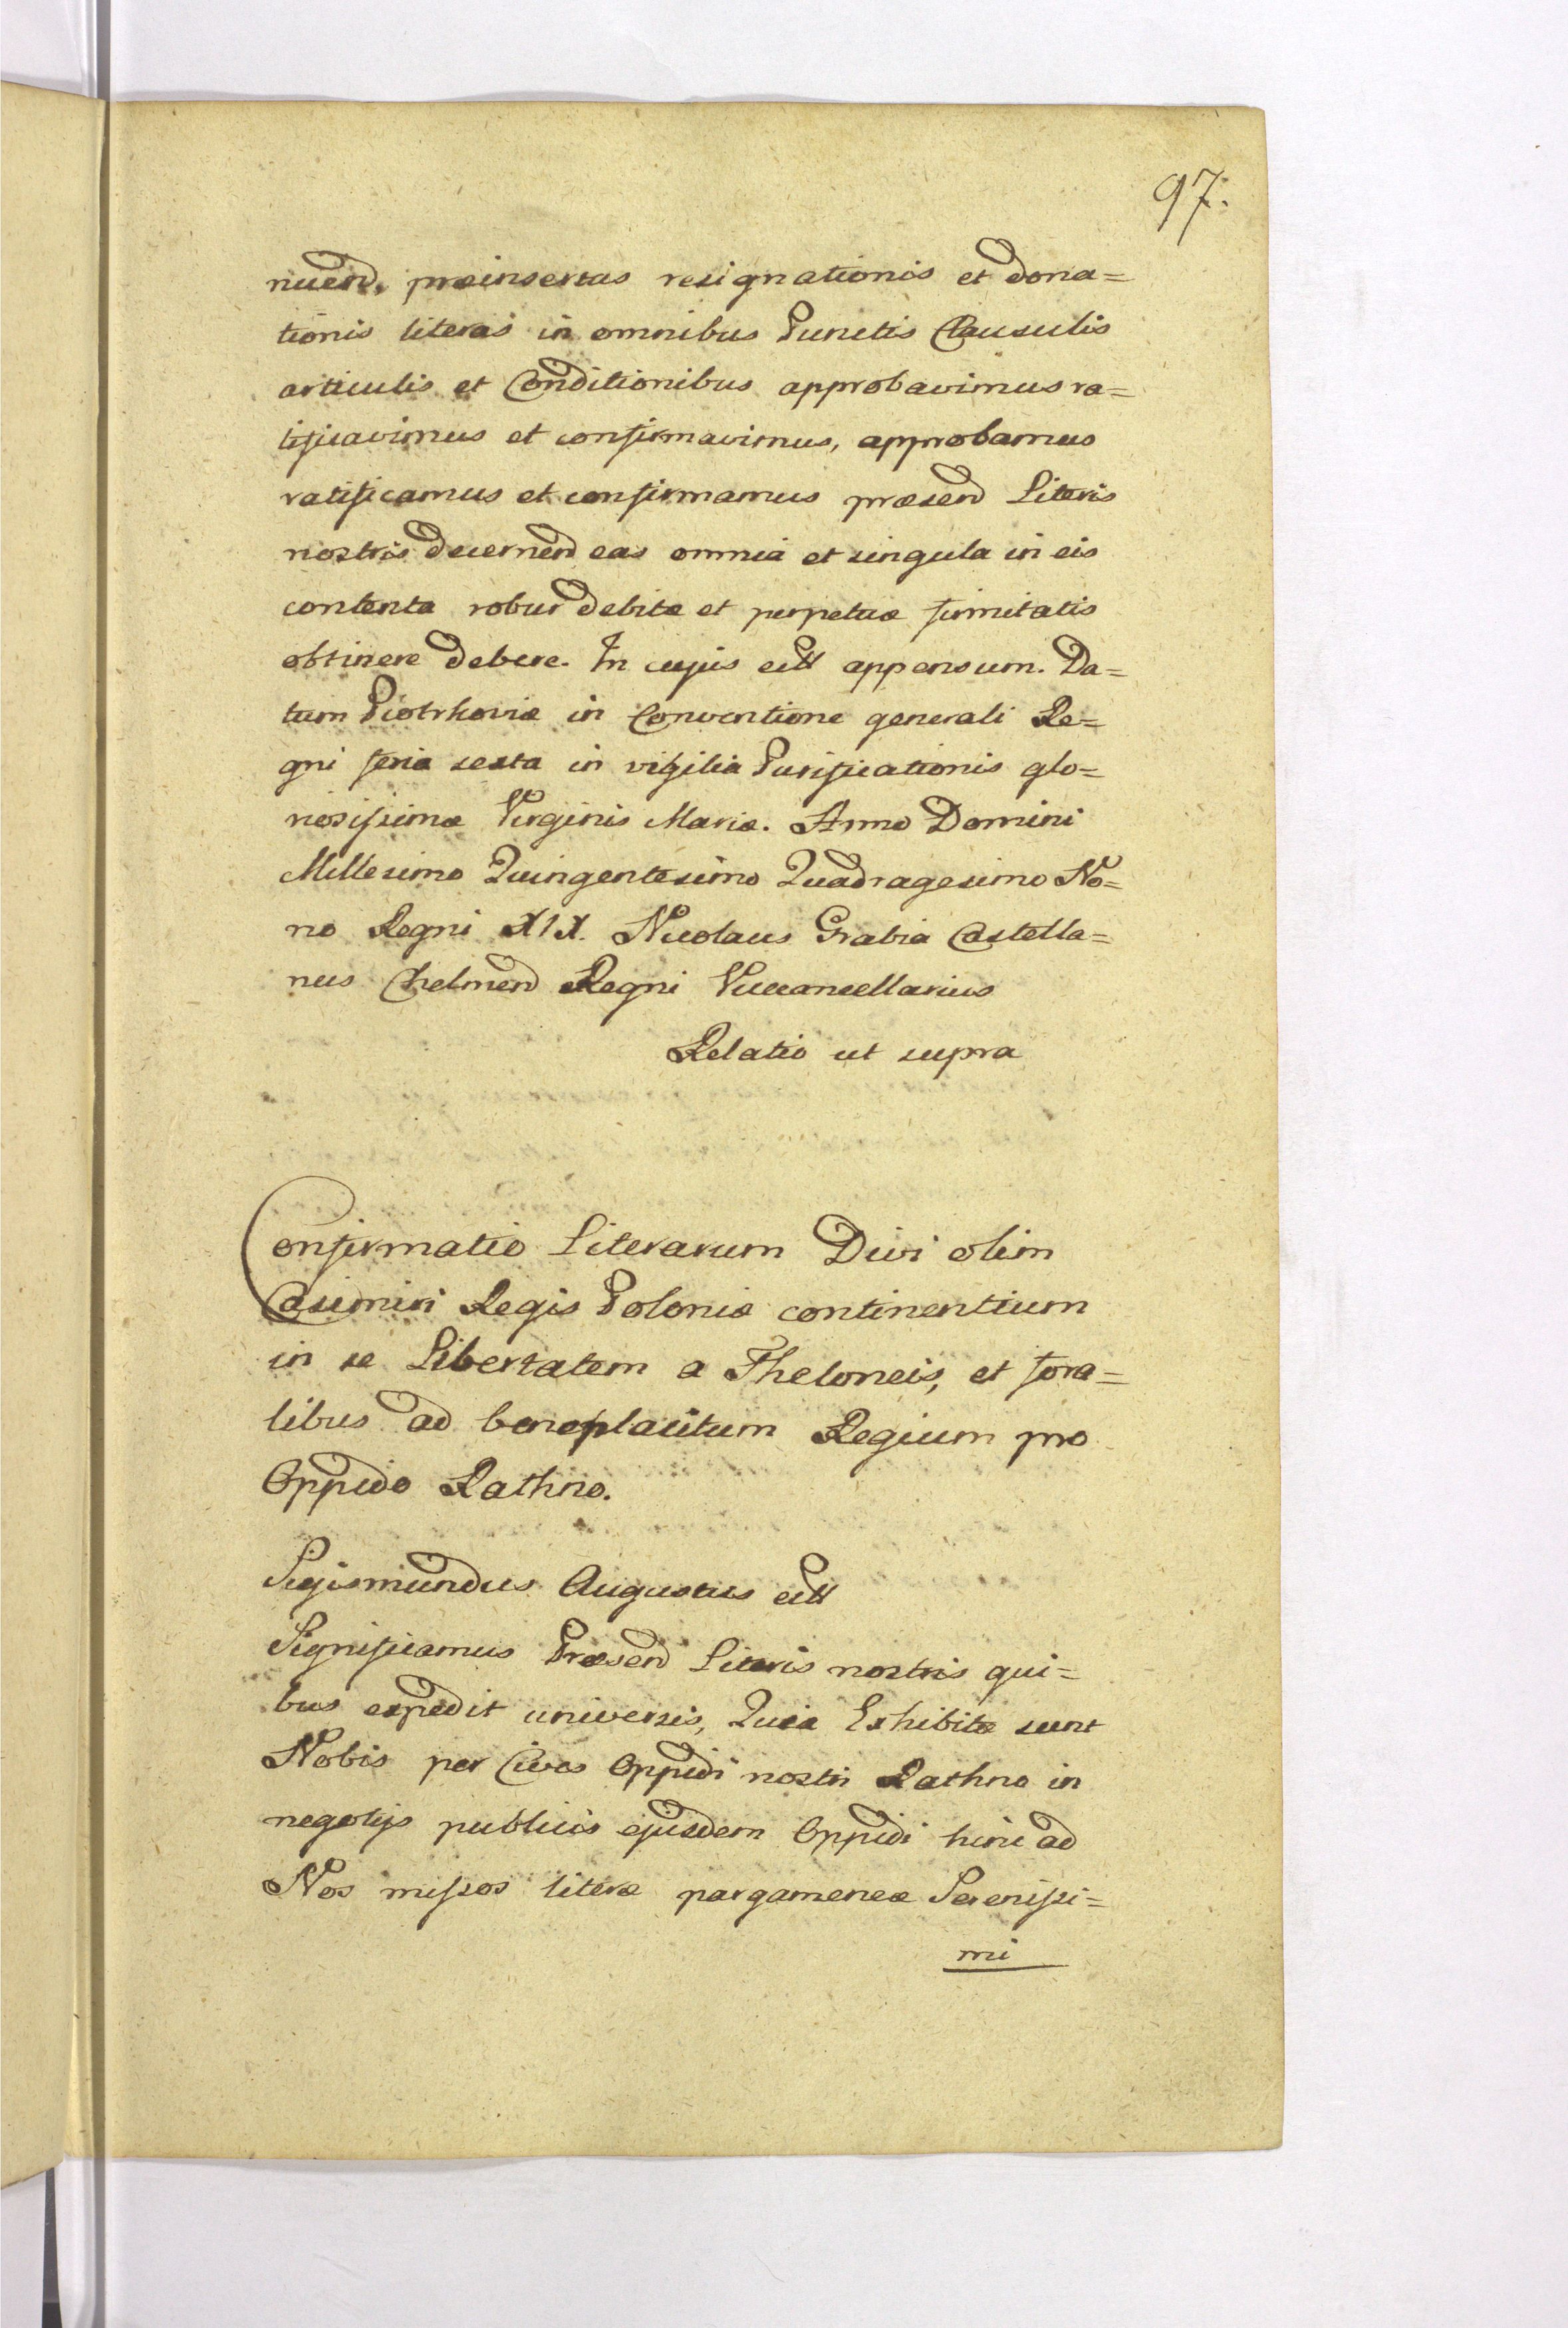 97.
nuend. præinsertas resignationis et dona=
tionis literas in omnibus Punctis Clausulis
articulis et Conditionibus approbavimus ra=
tificavimus et confirmavimus, approbamus
ratificamus et confirmamus præsend Literis
nostris decernend eas omnia et singula in eis
contenta robur debitæ et perpetuæ firmitatis
obtinere debere. In cujus ett appensum. Da=
tum Piotrkoviæ in Conventione generali Re=
gni feria sexta in vigilia Purificationis glo=
riosissimæ Virginis Mariæ. Anno Domini
Millesimo Quingentesimo Quadragesimo No=
no Regni XIX. Nicolaus Grabia Castella=
nus Chelmend Regni Vicecancellarius
Relatio ut supra
Confirmatio Literarum Divi olim
Casimiri Regis Poloniæ continentium
in se Libertatem a Theloneis, et fora=
libus ad beneplacitum Regium pro
Oppido Rathno.
Sigismundus Augustus ett
Significamus Præsend Literis nostris qui=
bus expedit universis, Quia Exhibitæ sunt
Nobis per Cives Oppidi nostri Rathno in
negotijs publicis ejusdem Oppidi huc ad
Nos missos literæ pargameneæ Serenissi=
mi